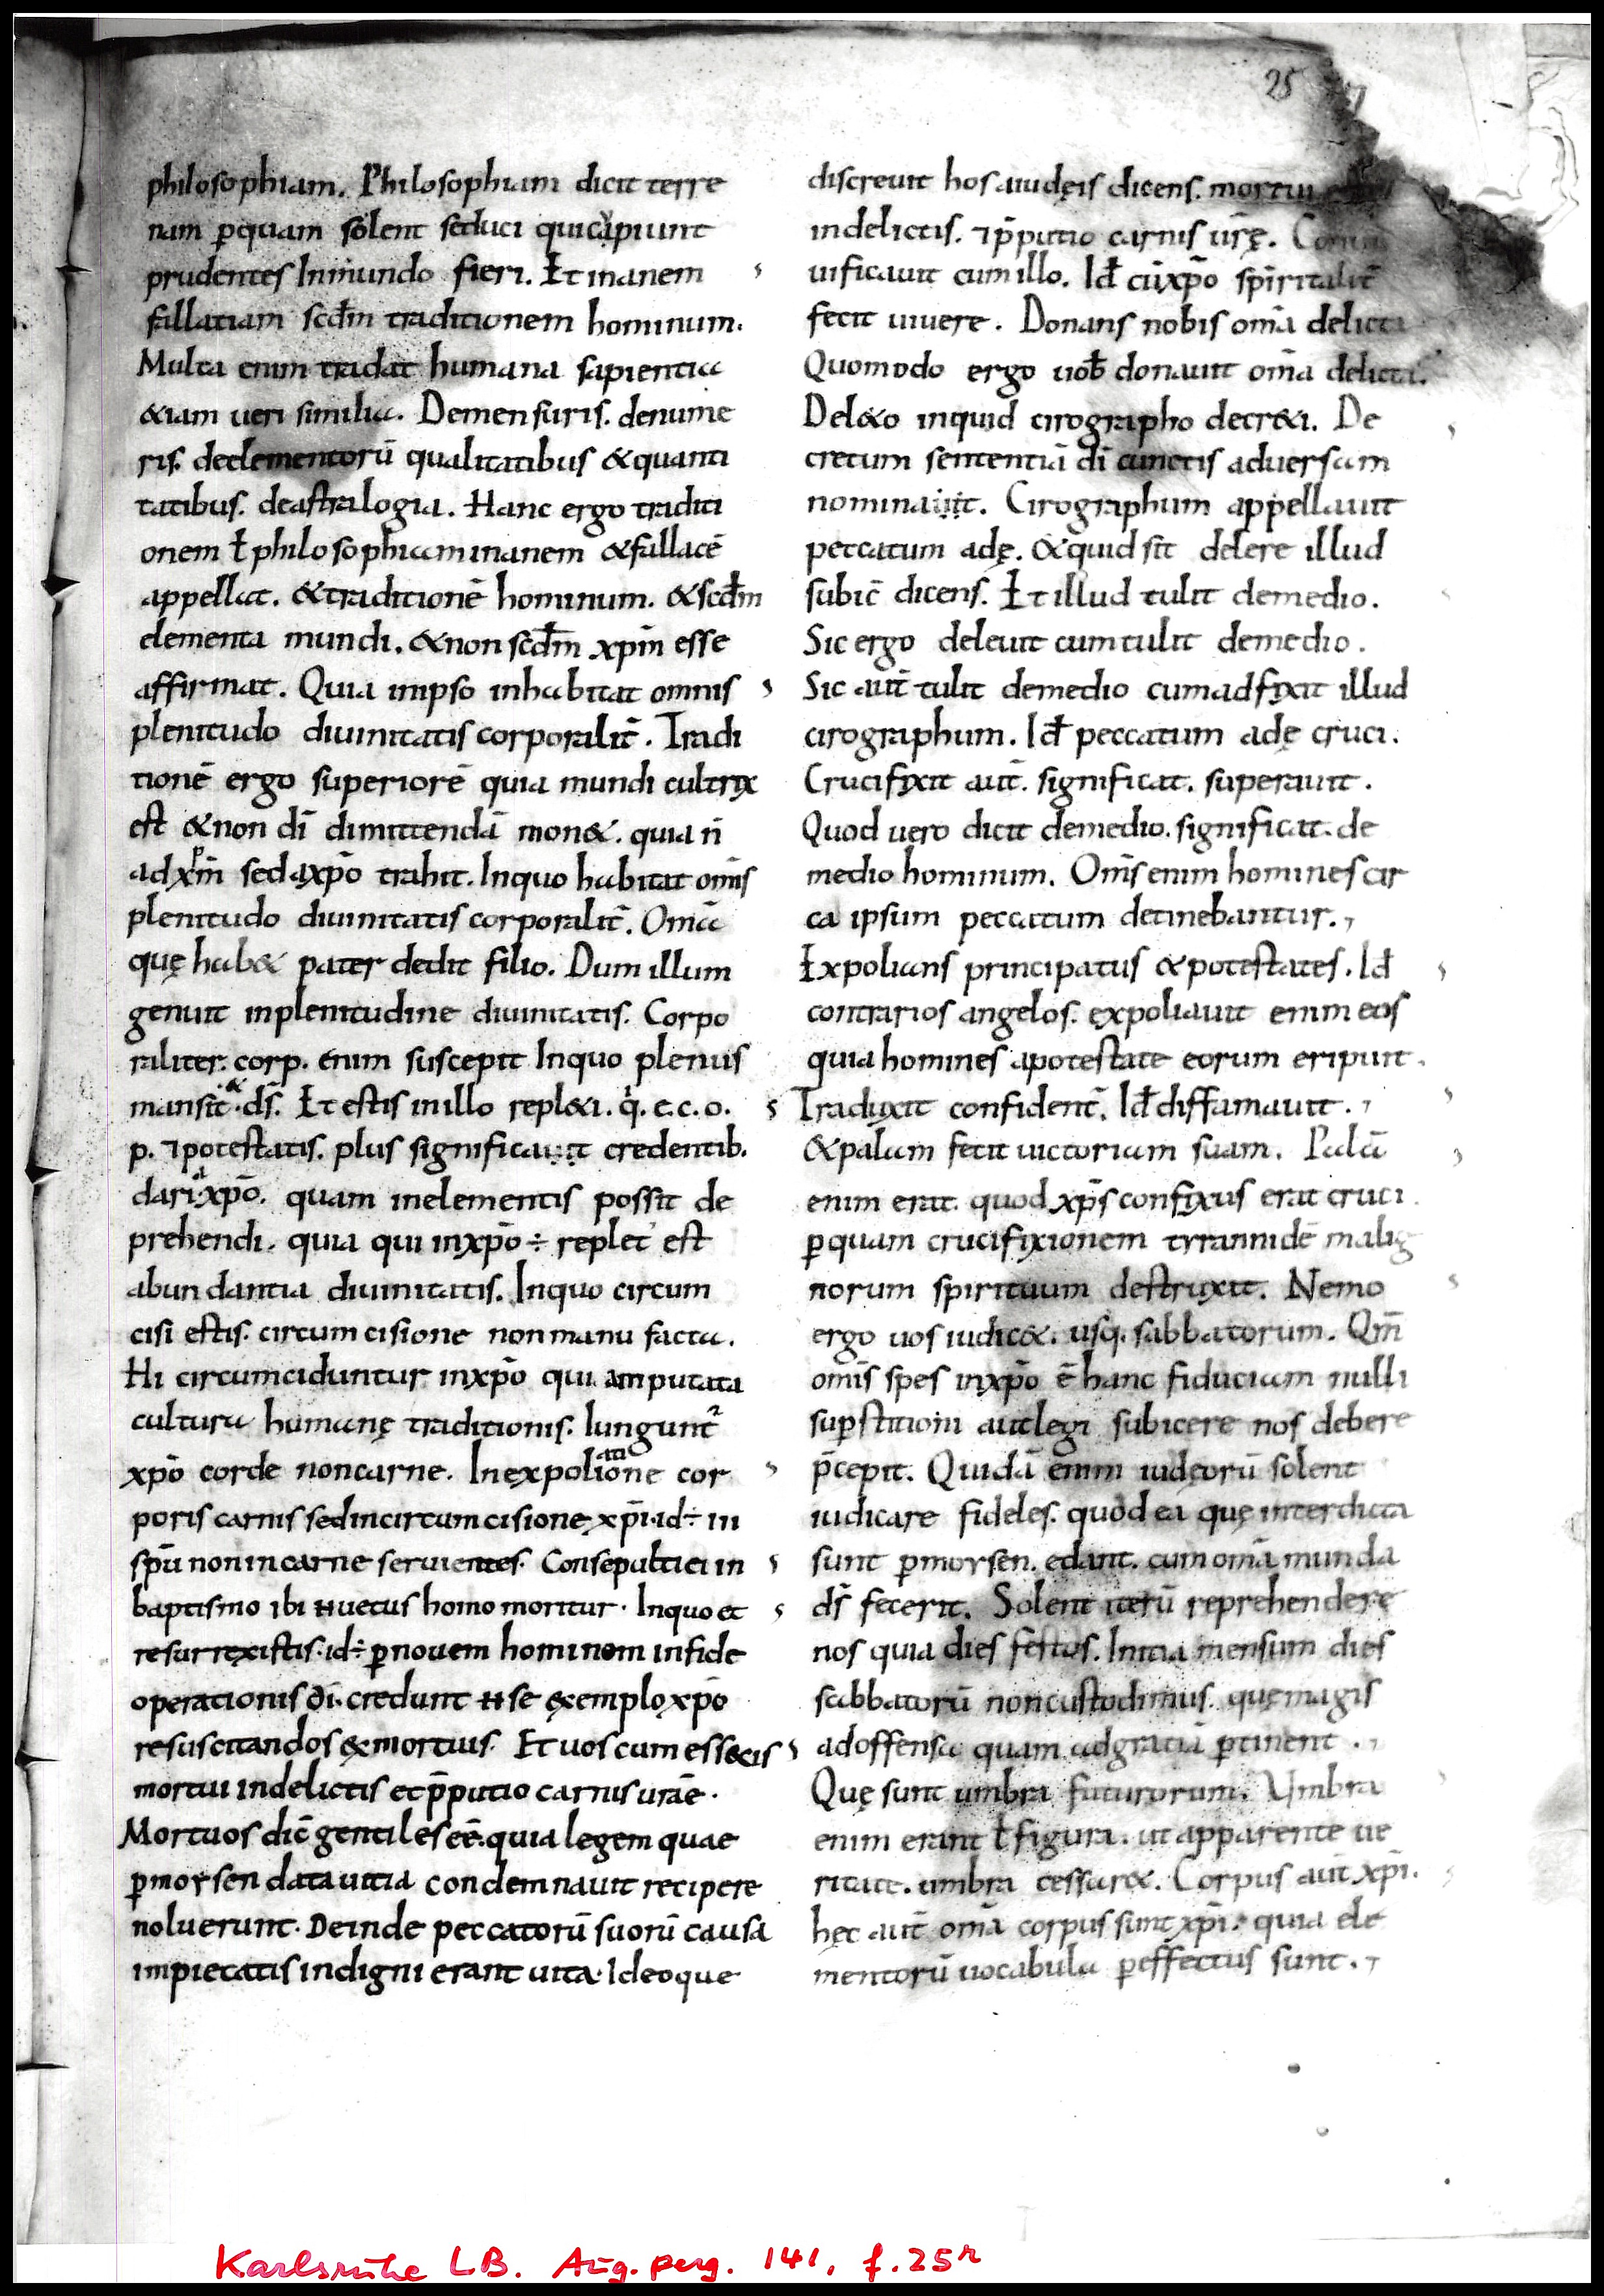 25
philosophiam. Philosophiam dicit terre
nam ꝑquam solent seduci quicapiunt
prudentes Inmundo fieri. Et inanem
fallatiam scdm̄ traditionem hominum.
Multa enim tradat humana sapientia
&iam ueri similia. Demensuris. denume
ris. deelementorū qualitatibus &quanti
tatibus. deastralogia. Hanc ergo traditi
onem ł philosophiaminanem &fallacē
appellat. &traditionē hominum. &scdm̄
elementa mundi. &non scdm̄ xpm̄ esse
affirmat. Quia inipso inhabitat omnis
plenitudo diuinitatis corporalit̄. Tradi
tionē ergo superiorē quia mundi cultrix
est &non dī dimittendā mon&. quia n̄
adxpm̄ sedaxpo̅ trahit. Inquo habitat om̄is
plenitudo diuinitatis corporalit̄. Om̄a
quę hab& pater dedit filio. Dum illum
genuit inplenitudine diuinitatis. Corpo
raliter. corp. enim suscepit Inquo plenus
mansit & ds̄. Et estis inillo repl&i. q̇. e. c. o.
p. ⁊potestatis. plus significauit credentib.
dari axpo̅. quam inelementis possit de
prehendi. quia qui inxpo̅ ÷ replet' est
abundantia diuinitatis. Inquo circum
cisi estis. circumcisione nonmanu facta.
Hi circumciduntur inxpo̅ qui amputata
cultura humanę traditionis. Iungunt᷑
xpo̅ corde noncarne. Inexpoliatione cor
poris carnis sedincircumcisione xp̄i. id÷ in
spū nonincarne seruientes. Consepultiei in
baptismo ibi ħuetus homo moritur. Inquo et
resurrexistis. id÷ ꝑnouem hominem infide
operationis dī. credunt ħse exemplo xpo̅
resuscitandos &mortuis. Et uos cum ess&is
mortui indelictis etp̄putio carnis urāe.
Mortuos dic̄ gentiles eē. quia legem quae
ꝑmoysen data uitia condemnauit recipere
noluerunt. Deinde peccatorū suorū causa
impietatis indigni erant uita. Ideoque
discreuit hos aiudęis dicens. mortui
indelictis. ⁊p̄putio carnis ur̄ę.
uificauit cum illo. Id̄ cūxpo̅ spiritalit̄
fecit uiuere. Donans nobis om̄a delicta
Quomodo ergo uob̄ donauit om̄a delicta.
Del&o inquid cirographo decr&i. De
cretum sententiā dī cunctis aduersam
nominauit. Cirographum appellauit
peccatum adę. &quid sit delere illud
subic̄ dicens. Et illud tulit demedio.
Sic ergo deleuit cum tulit demedio.
Sic aut̄ tulit demedio cumadfixit illud
cirographum. Id̄ peccatum adę cruci.
Crucifixit aut̄. significat. superauit.
Quod uero dicit demedio. significat. de
medio hominum. Om̄s enim homines cir
ca ipsum peccatum detinebantur.
Expolians principatus &potestates. Id̄
contrarios angelos. expoliauit enim eos
quia homines apotestate eorum eripuit.
Traduxit confident̄. Id̄ diffamauit.
&palam fecit uictoriam suam. Palā
enim erat. quod xp̄s confixus erat cruci.
ꝑquam crucifixionem tyrannidē malig
norum spirituum destruxit. Nemo
ergo uos iudic&. usq. sabbatorum. Qm̄
om̄is spes inxpo̅ ē hanc fiduciam nulli
suꝑstitioni autlegi subicere nos debere
p̄cepit. Quidā enim iudęorū solent
iudicare fideles. quod ea quę interdicta
sunt ꝑmoysen. edant. cum om̄a munda
ds̄ fecerit. Solent iterū reprehendere
nos quia dies festos. Initia mensum dies
sabbatorū noncustodimus. quę magis
adoffensa quam adgratiā ꝑtinent.
Quę sunt umbra futurorum. Umbra
enim erant ł figura. ut apparente ue
ritate. umbra cessar&. Corpus aut̄ xp̄i.
hęc aut̄ om̄a corpus sunt xp̄i. quia ele
mentorū uocabula ꝑeffectus sunt.
Karlsruhe LB. Aug. perg. 141, f. 25ʳ